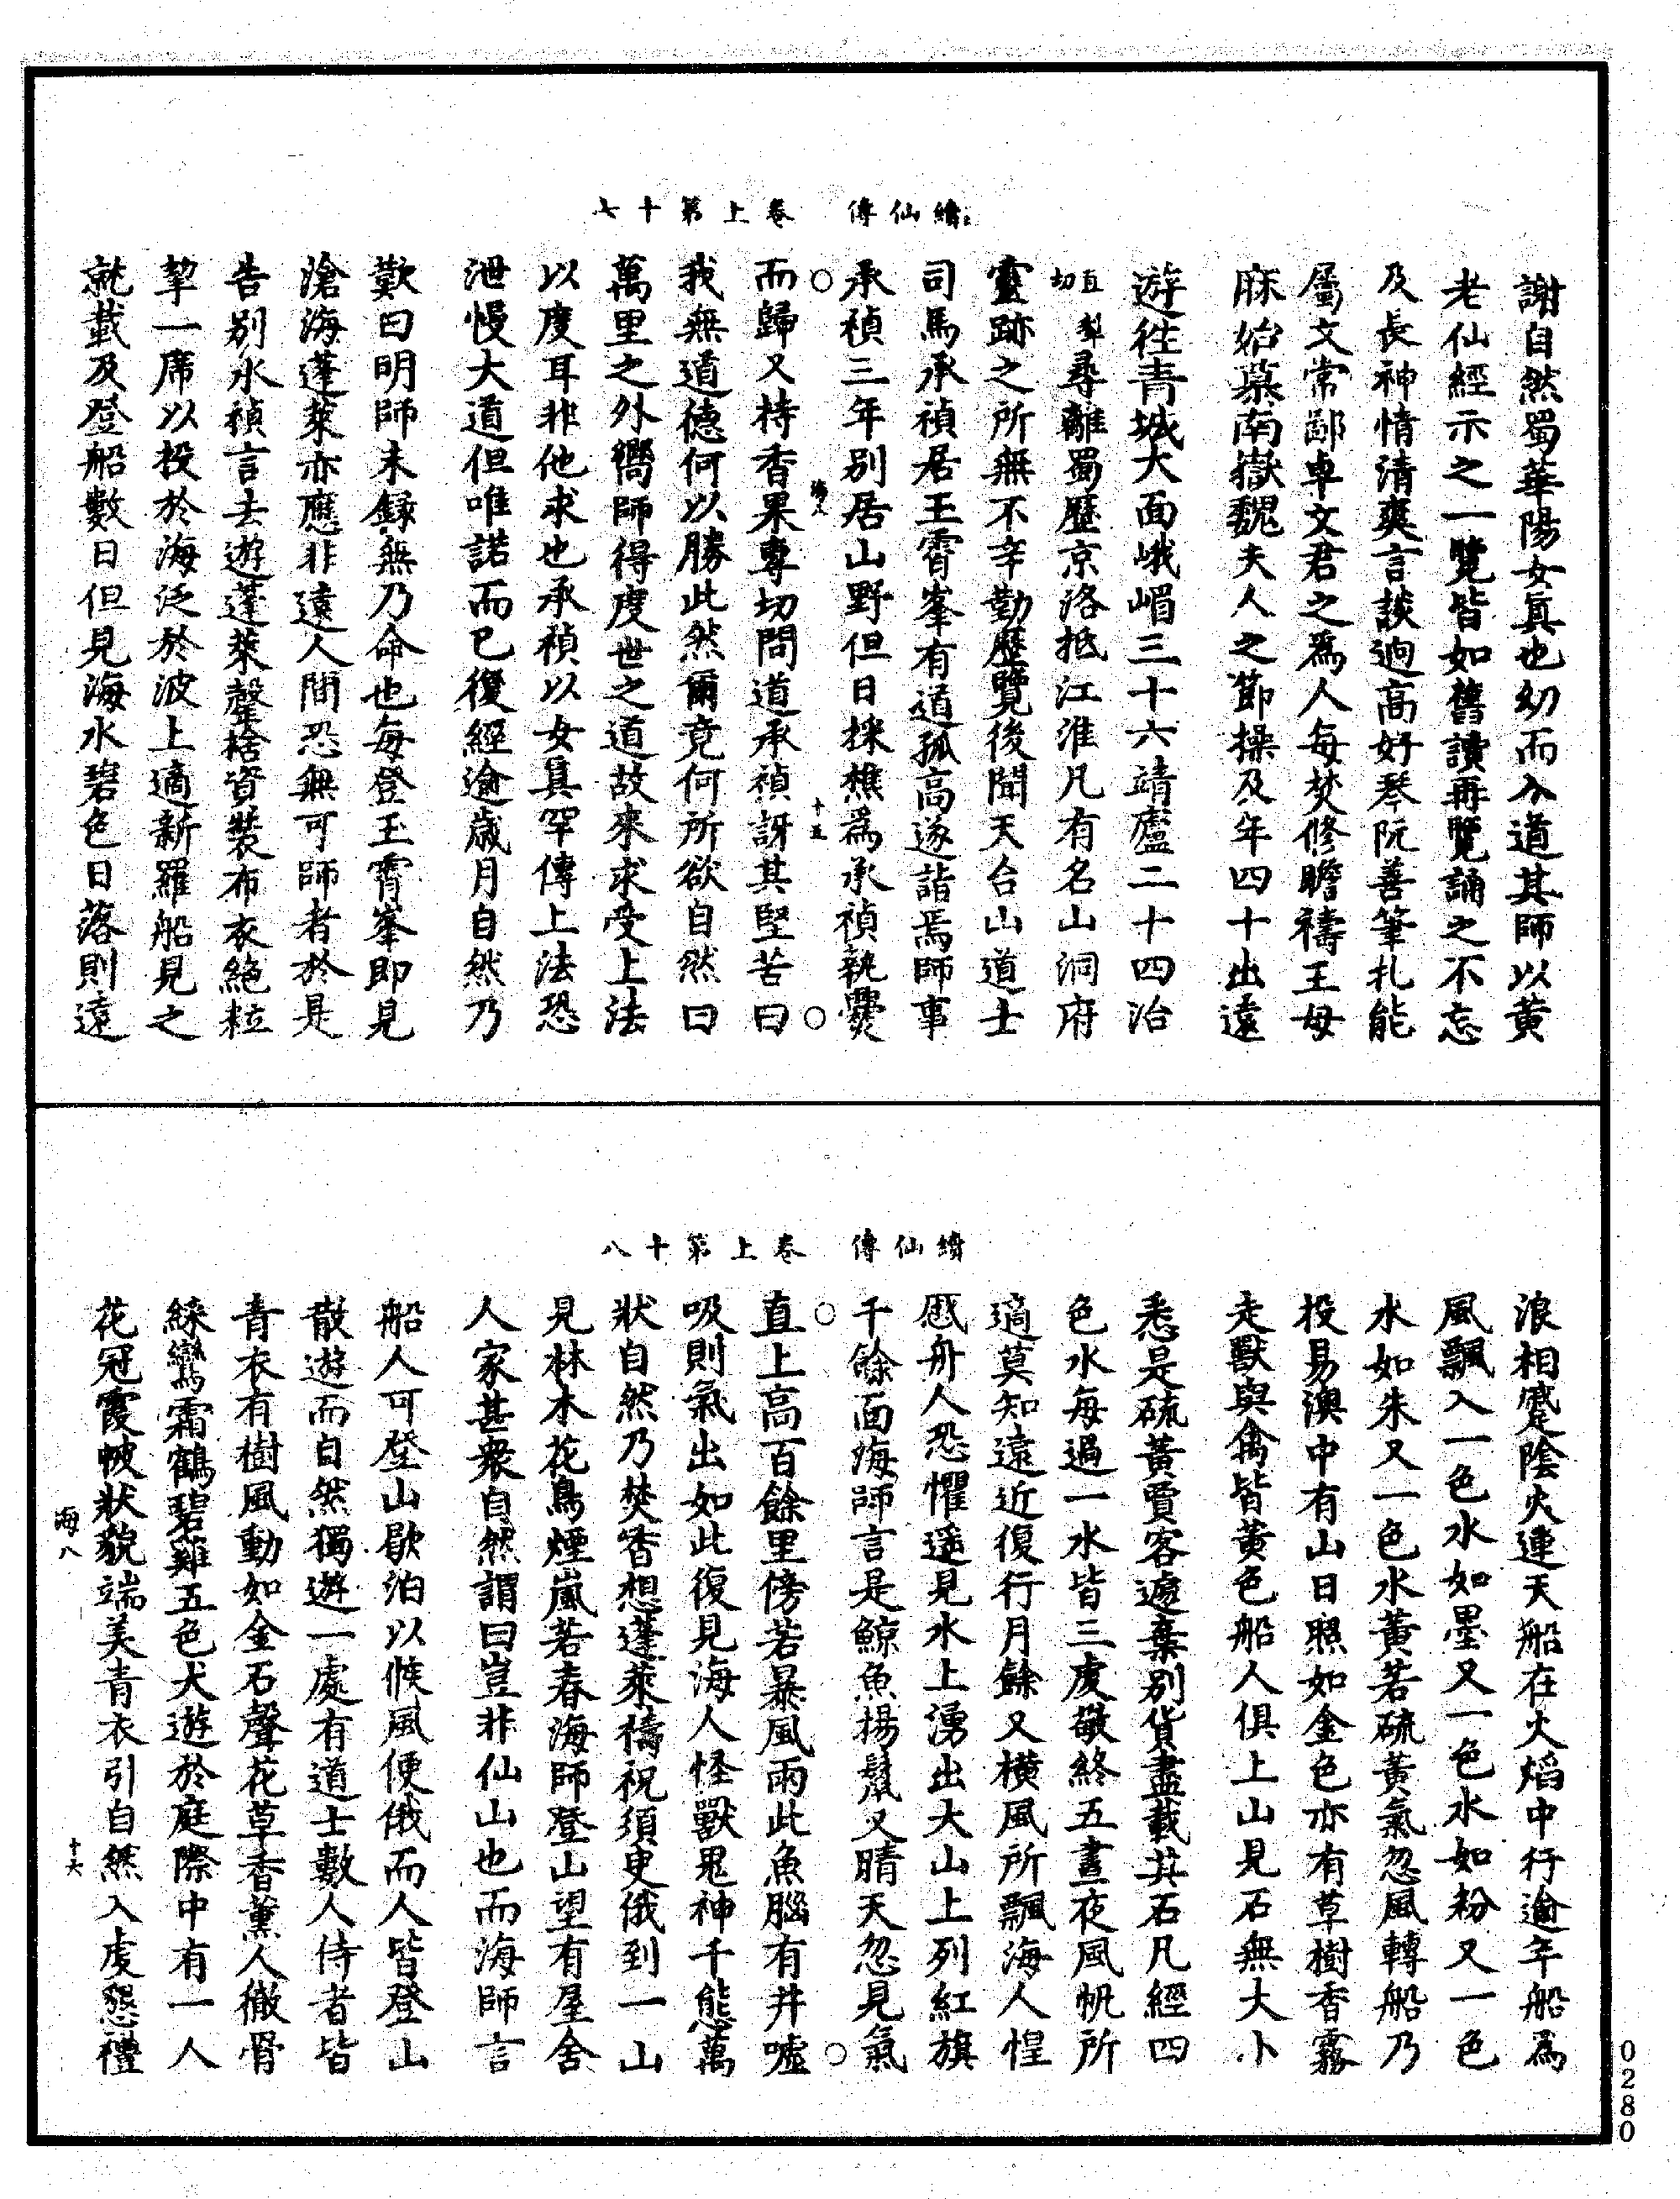 續仙傳 卷上第十七
謝自然蜀華陽女真也幼而入道其師以黃
老仙經示之一覽皆如舊讀再覽誦之不忘
及長神情清爽言談迥高好琴阮善筆札能
屬文常鄙卓文君之爲人每焚修瞻禱王母
麻姑慕南嶽魏夫人之節操及年四十出遠
遊往青城大面峨嵋三十六靖廬二十四治
直犁切尋離蜀歷京洛抵江淮凡有名山洞府
靈跡之所無不辛勤歷覽後聞天台山道士
司馬承禎居玉霄峯有道孤高遂詣焉師事
承禎三年別居山野但日採樵爲承禎執爨
○ 海八 十五 ○
而歸又持香果專切問道承禎訝其堅苦曰
我無道德何以勝此然爾竟何所欲自然曰
萬里之外嚮師得度世之道故來求受上法
以度耳非他求也承禎以女真罕傳上法恐
泄慢大道但唯諾而已復經逾歲月自然乃
歎曰明師未錄無乃命也每登玉霄峯即見
滄海蓬萊亦應非遠人間恐無可師者於是
告別承禎言去遊蓬萊罄捨資裝布衣絕粒
挈一席以投於海泛於波上適新羅船見之
就載及登船數日但見海水碧色日落則遠
續仙傳 卷上第十八
浪相蹙陰火連天船在火焰中行逾年船爲
風飄入一色水如墨又一色水如粉又一色
水如朱又一色水黃若硫黃氣忽風轉船乃
投易澳中有山日照如金色亦有草樹香霧
走獸與禽皆黃色船人俱上山見石無大小
悉是硫黃賈客遽棄別貨盡載其石凡經四
色水每過一水皆三虔敬終五晝夜風帆所
適莫知遠近復行月餘又橫風所飄海人惶
慼舟人恐懼遥見水上湧出大山上列紅旗
千餘面海師言是鯨魚揚鬣又晴天忽見氣
○ ○
直上高百餘里傍若暴風雨此魚腦有井噓
吸則氣出如此復見海人怪獸鬼神千態萬
狀自然乃焚香想蓬萊禱祝須臾俄到一山
見林木花鳥煙嵐若春海師登山望有屋舍
人家甚衆自然謂曰豈非仙山也而海師言
船人可登山歇泊以候風便俄而人皆登山
散遊而自然獨遊一處有道士數人侍者皆
青衣有樹風動如金石聲花草香薰人徹骨
綵鸞霜鶴碧雞五色犬遊於庭際中有一人
花冠霞帔狀貌端美青衣引自然入虔懇禮
海八 十六
0280